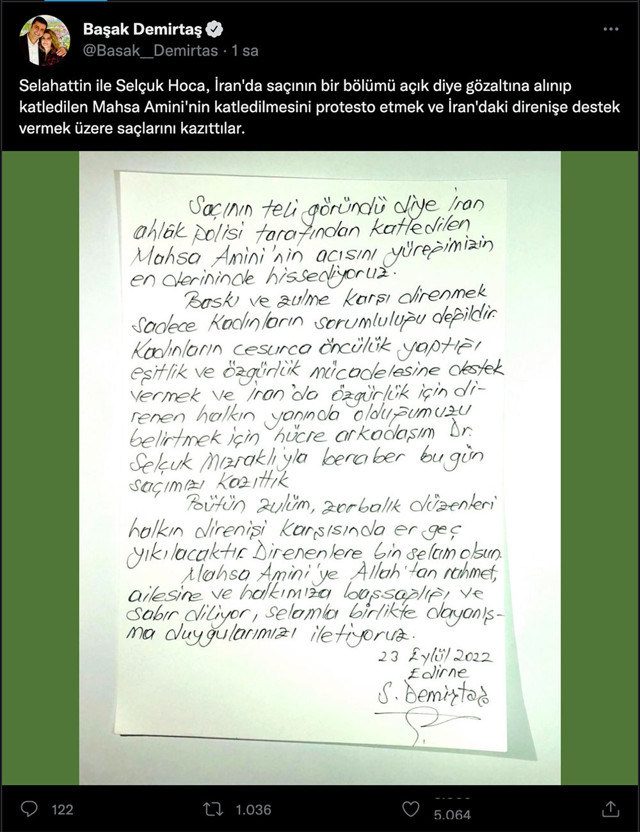 Başak Demirtaş
@Basak__Demirtas · 1 sa
Selahattin ile Selçuk Hoca, İran'da saçının bir bölümü açık diye gözaltına alınıp
katledilen Mahsa Amini'nin katledilmesini protesto etmek ve İran'daki direnişe destek
vermek üzere saçlarını kazıttılar.
Saçının teli göründü diye İran
ahlâk polisi tarafından katledilen
Mahsa Amini'nin acısını yüreğimizin
en derininde hissediyoruz.
Baskı ve zulme karşı direnmek
sadece kadınların sorumluluğu değildir.
Kadınların cesurca öncülük yaptığı
eşitlik ve özgürlük mücadelesine destek
vermek ve İran'da özgürlük için di-
renen halkın yanında olduğumuzu
belirtmek için hücre arkadaşım Dr.
Selçuk Mızraklıyla beraber bugün
saçımızı kazıttık
Bütün zulüm, zorbalık düzenleri
halkın direnişi karşısında er geç
yıkılacaktır. Direnenlere bin selam olsun.
Mahsa Amini'ye Allah'tan rahmet,
ailesine ve halkımıza başsağlığı ve
sabır diliyor, selamla birlikte dayanış-
ma duygularımızı iletiyoruz.
23 Eylül 2022
Edirne
S. Demirtaş
122
1.036
5.064